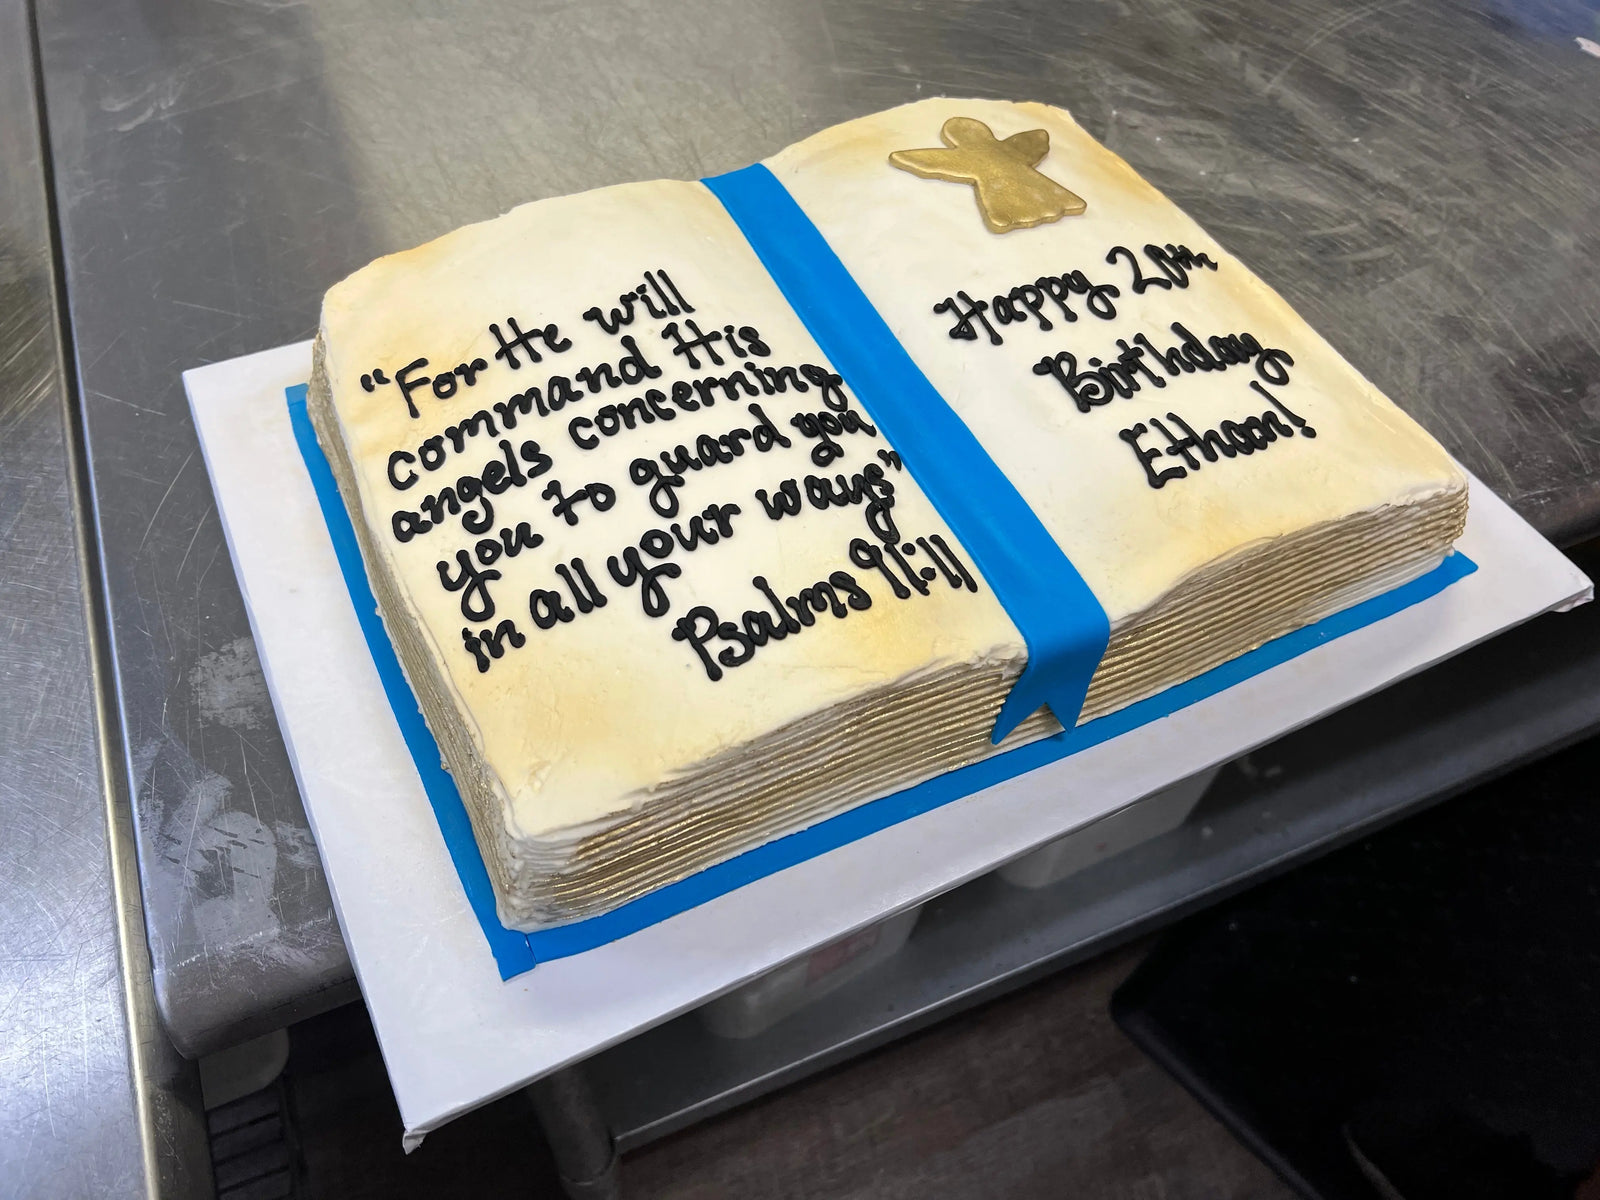 "For He will
command His
angels concerning
you to guard you
in all your ways"
Psalms 91:11
Happy 20th
Birthday
Ethan!